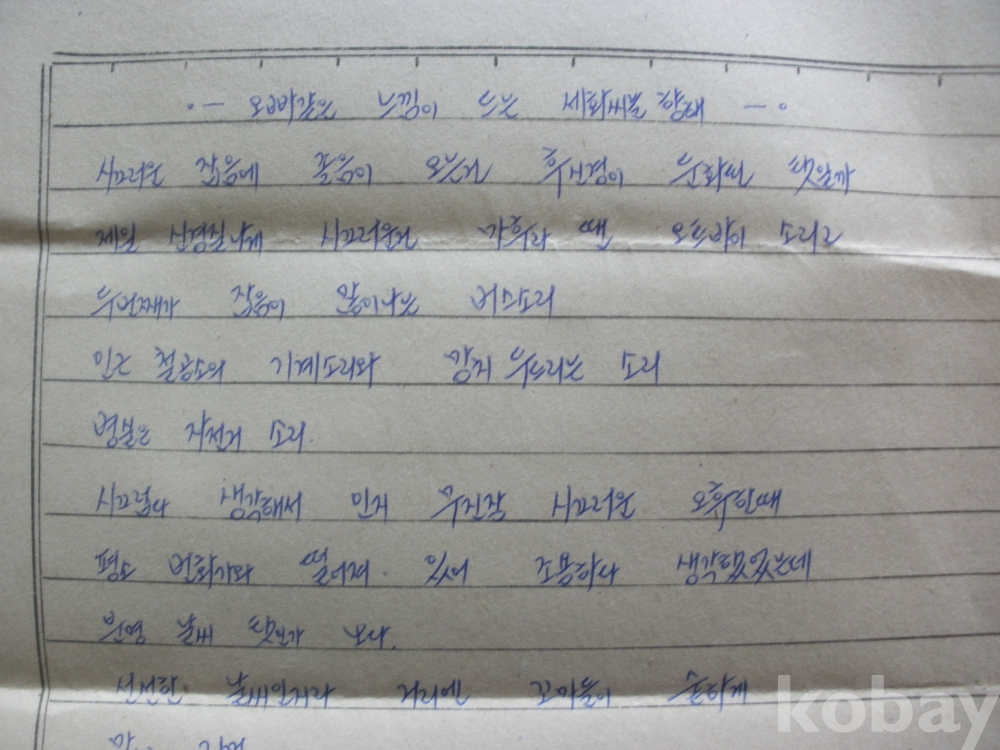 ·— 오빠같은 느낌이 드는 세화씨를 향해 —·
시끄러운 잡음에 졸음이 오는건 후신경이 둔화된 탓일까
제일 신경질나게 시끄러운건 가죽라 땐 오트바이 소리고
두번째가 잡음이 많이나는 버스소리
인근 철공소의 기계소리와 깡치 두드리는 소리
병실은 자전거 소리.
시끄럽다 생각해서 인지 무진장 시끄러운 오후한때
평소 번화가와 떨어져 있어 조용하다 생각됐었는데
분명 날씨 탓인가 보다.
선선한 날씨인지라 거리엔 꼬마들이 술하게
kobay